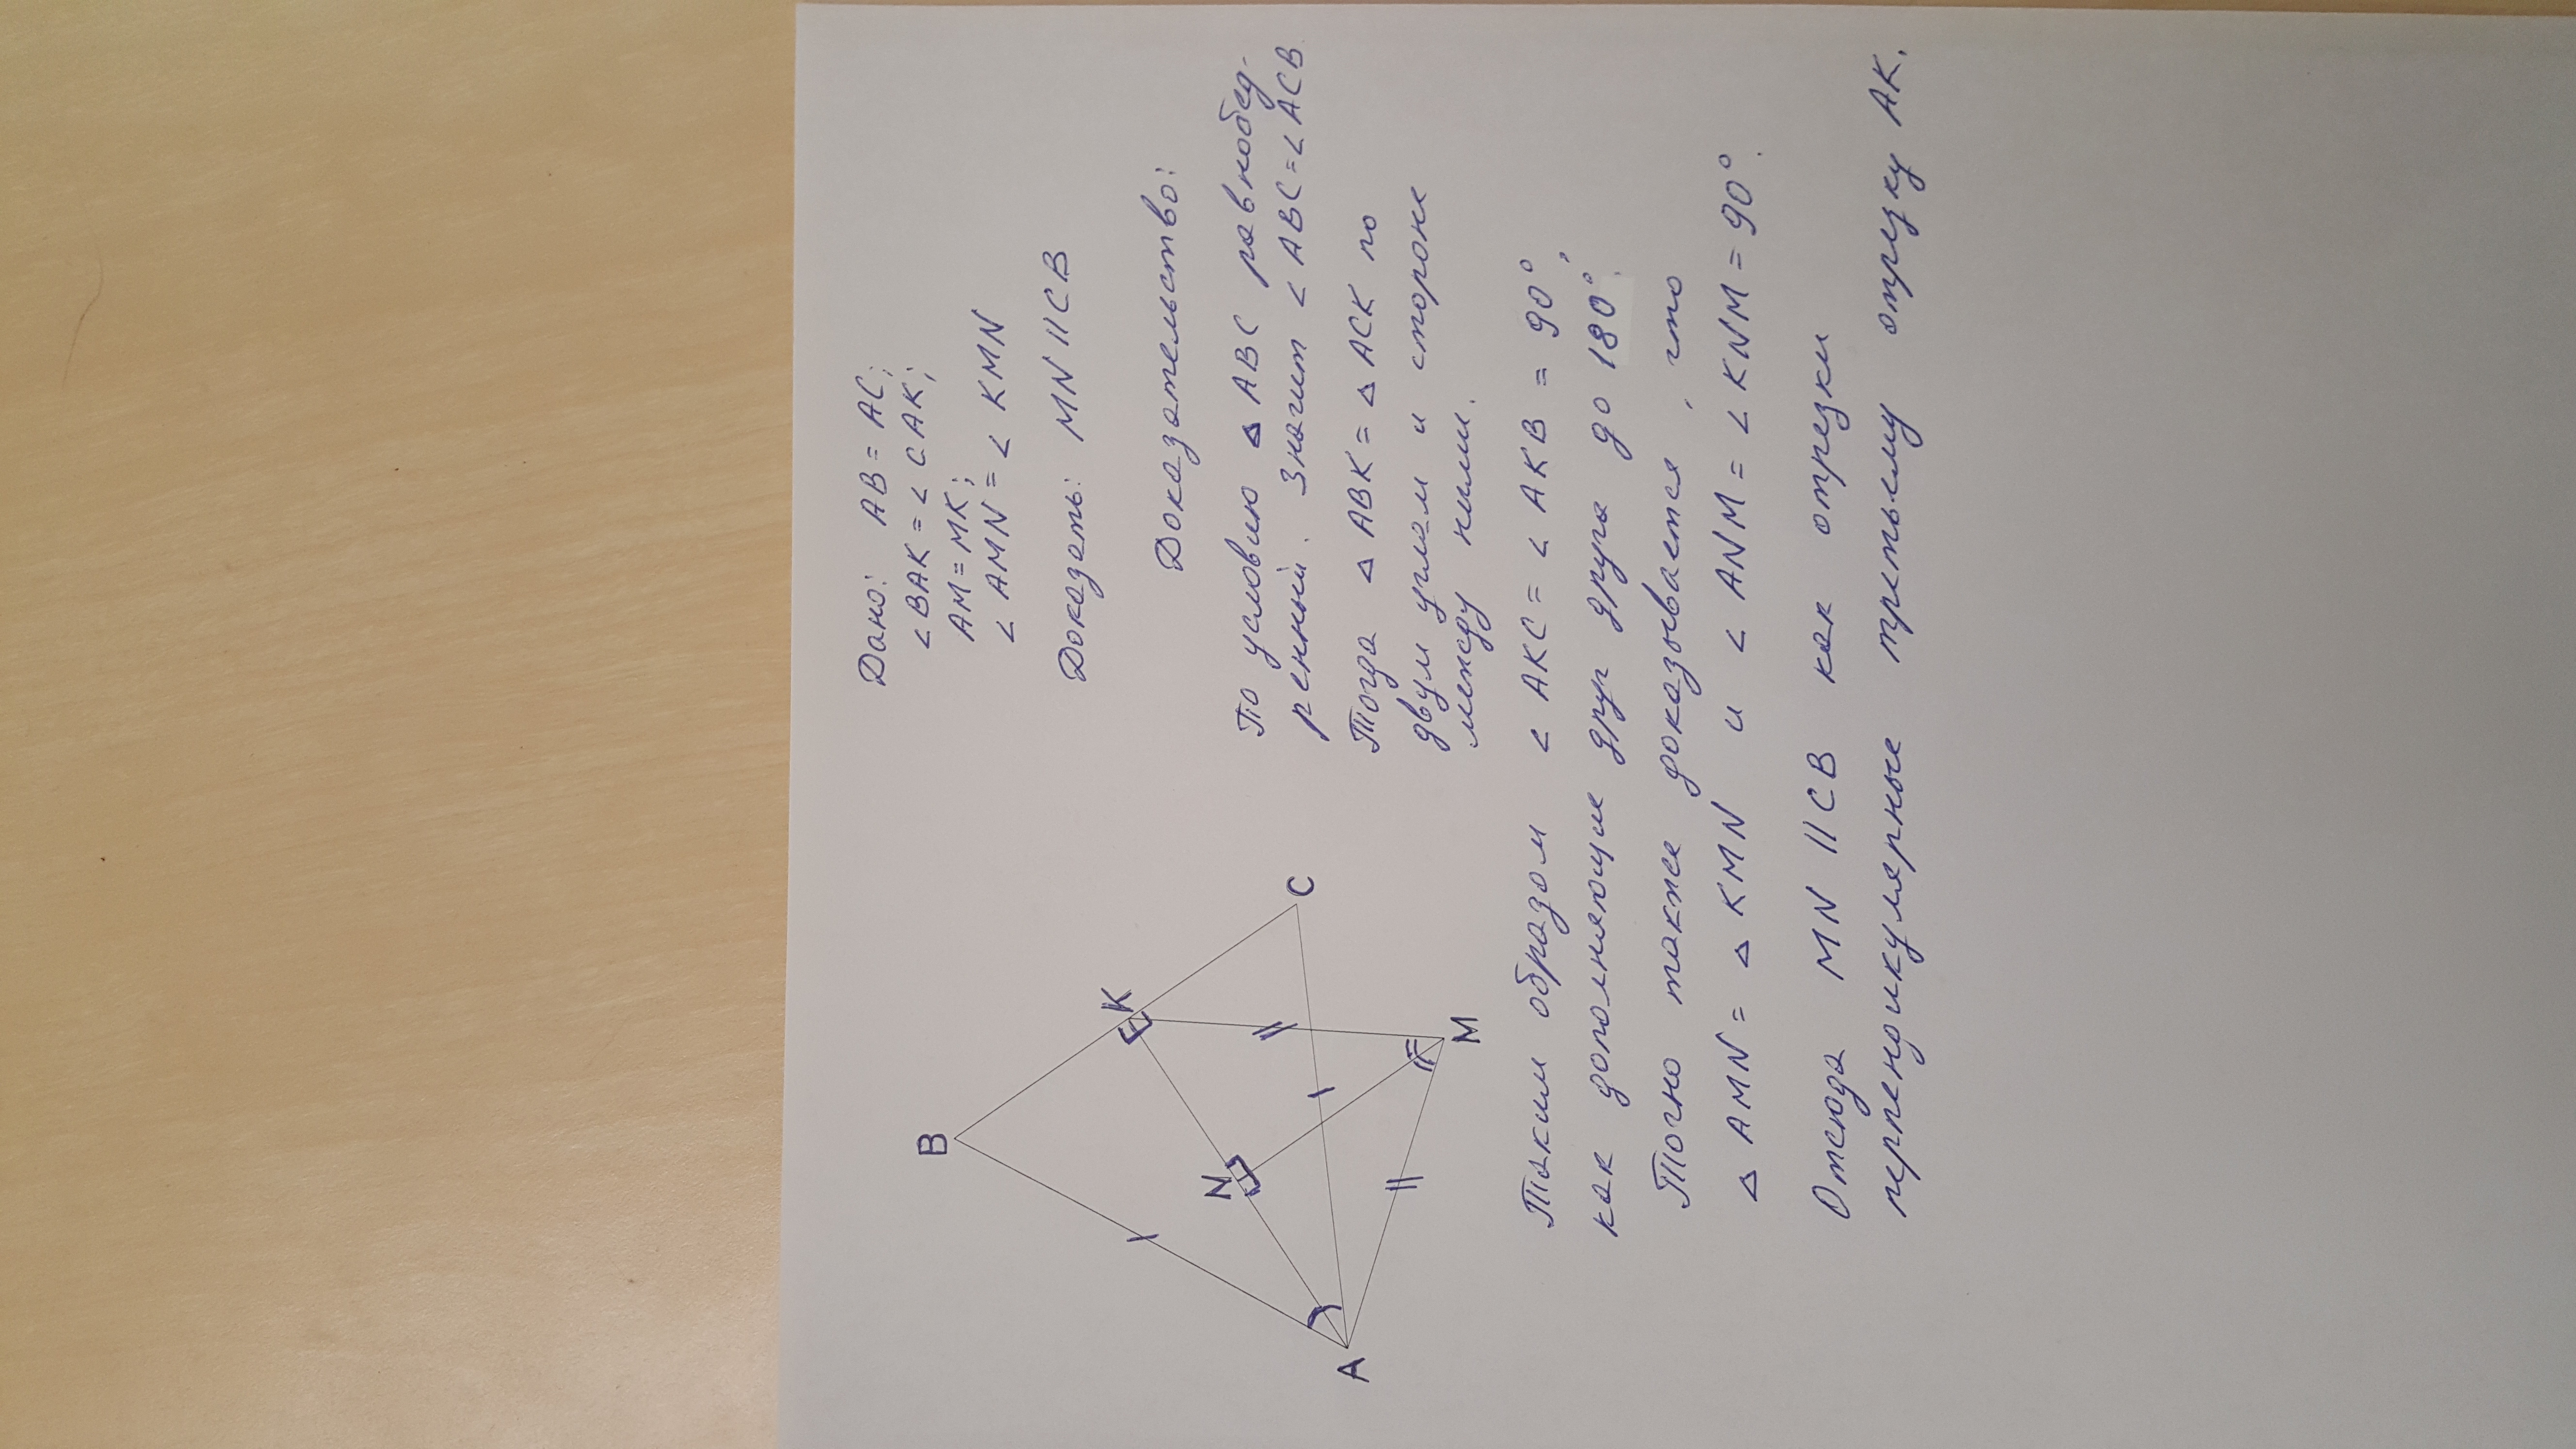 Дано: AB = AC;
∠BAK = ∠CAK;
AM = MK;
∠AMN = ∠KMN
Доказать: MN || CB
Доказательство:
По условию △ABC равнобед-
ренный. Значит ∠ABC = ∠ACB.
Тогда △ABK = △ACK по
двум углам и стороне
между ними.
B
K
C
N
A
M
Таким образом ∠AKC = ∠AKB = 90°,
как дополняющие друг друга до 180°.
Точно также доказывается, что
△AMN = △KMN и ∠ANM = ∠KNM = 90°.
Отсюда MN || CB как отрезки
перпендикулярные третьему отрезку AK.